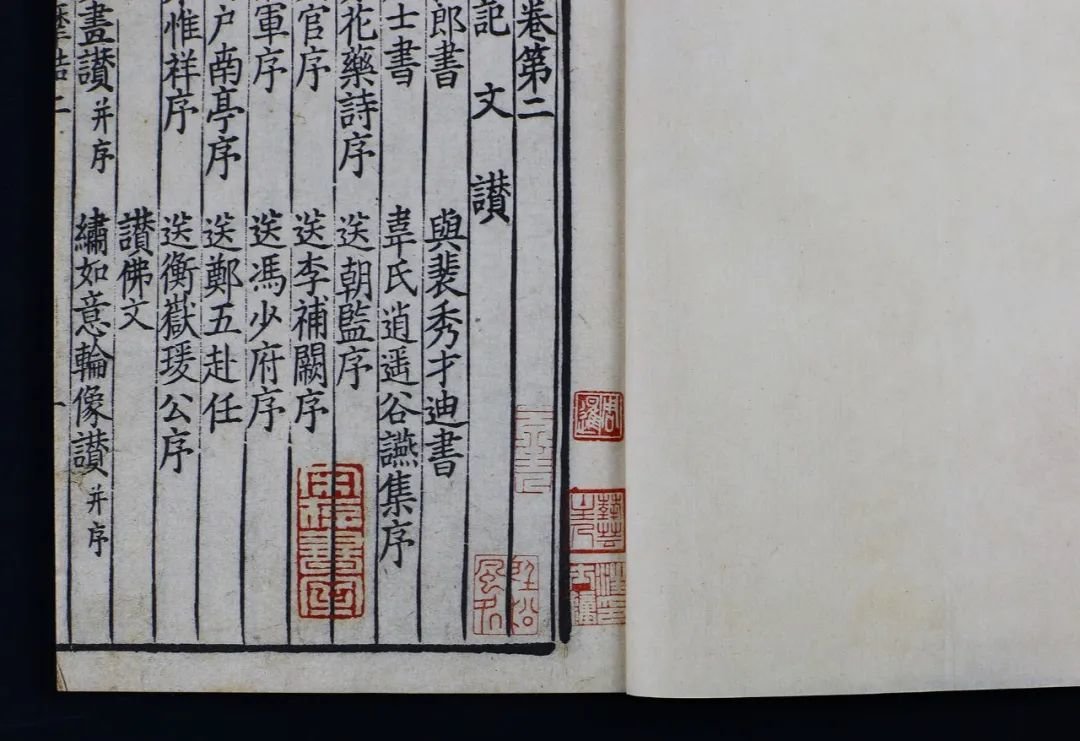 卷第二
記 文 讃
郎書 與裴秀才迪書
士書 韋氏逍遥谷讌集序
花藥詩序 送朝監序
官序 送李補闕序
軍序 送馮少府序
户南亭序 送鄭五赴任
惟祥序 送衡嶽瑗公序
讃佛文
畫讃并序 繡如意輪像讃并序
周暹
藝芸主人